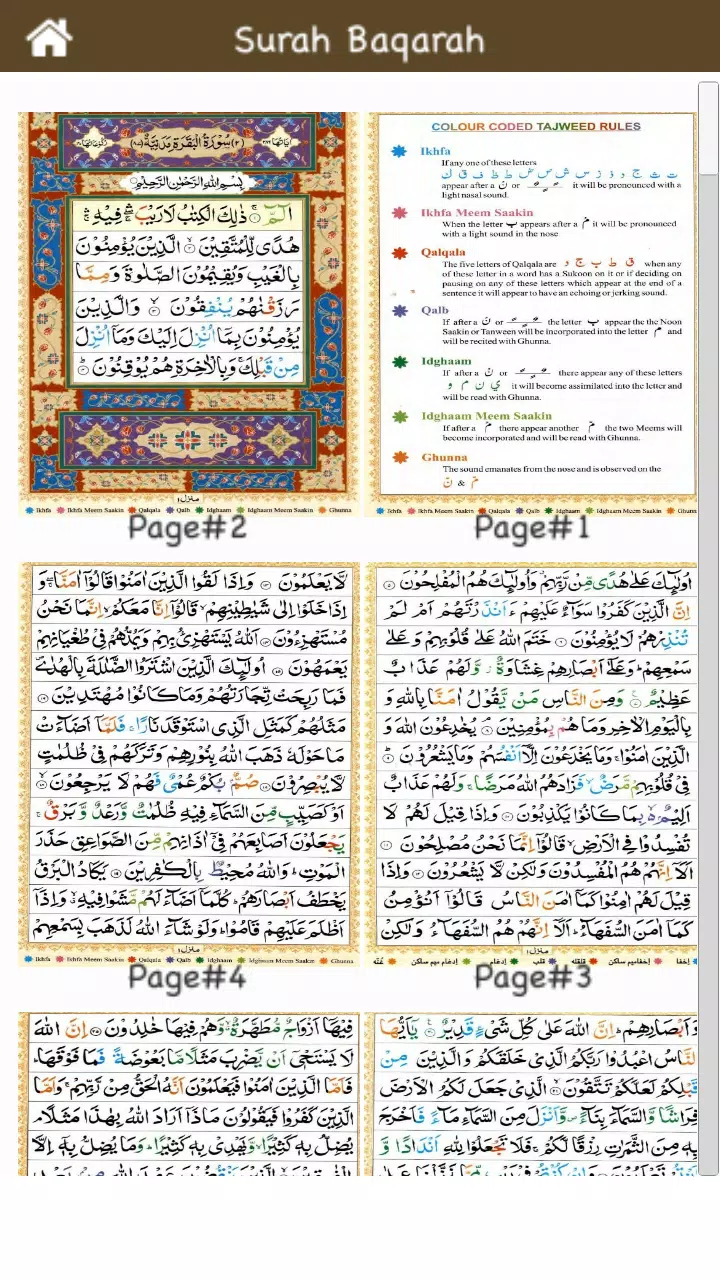 Surah Baqarah
COLOUR CODED TAJWEED RULES
Ikhfa
If any one of these letters
ت ث ج د ذ ز س ش ص ض ط ظ ف ق ك
appear after a نْ or it will be pronounced with a
light nasal sound.
Ikhfa Meem Saakin
When the letter ب appears after a مْ it will be pronounced
with a light sound in the nose
Qalqala
The five letters of Qalqala are ق ط ب ج د when any
of these letter in a word has a Sukoon on it or if deciding on
pausing on any of these letters which appear at the end of a
sentence it will appear to have an echoing or jerking sound.
Qalb
If after a نْ or the letter ب appear the the Noon
Saakin or Tanween will be incorporated into the letter م and
will be recited with Ghunna.
Idghaam
If after a نْ or there appear any of these letters
ي ن م و it will become assimilated into the letter and
will be read with Ghunna.
Idghaam Meem Saakin
If after a مْ there appear another مْ the two Meems will
become incorporated and will be read with Ghunna.
Ghunna
The sound emanates from the nose and is observed on the
نّ & مّ
Ikhfa Ikhfa Meem Saakin Qalqala Qalb Idghaam Idghaam Meem Saakin Ghunn
Page#1
سُوْرَةُ الْبَقَرَةِ مَدَنِيَّةٌ
بِسْمِ اللّٰهِ الرَّحْمٰنِ الرَّحِيْمِ
الٓمّٓ ۚ ذٰلِكَ الْكِتٰبُ لَا رَيْبَ ۛۖ فِيْهِ ۛۚ
هُدًى لِّلْمُتَّقِيْنَ ۙ الَّذِيْنَ يُؤْمِنُوْنَ
بِالْغَيْبِ وَيُقِيْمُوْنَ الصَّلٰوةَ وَمِمَّا
رَزَقْنٰهُمْ يُنْفِقُوْنَ ۙ وَالَّذِيْنَ
يُؤْمِنُوْنَ بِمَآ اُنْزِلَ اِلَيْكَ وَمَآ اُنْزِلَ
مِنْ قَبْلِكَ ۚ وَبِالْاٰخِرَةِ هُمْ يُوْقِنُوْنَ ؕ
منزل ١
Ikhfa Ikhfa Meem Saakin Qalqala Qalb Idghaam Idghaam Meem Saakin Ghunna
Page#2
اُولٰٓئِكَ عَلٰى هُدًى مِّنْ رَّبِّهِمْ ۗ وَاُولٰٓئِكَ هُمُ الْمُفْلِحُوْنَ
اِنَّ الَّذِيْنَ كَفَرُوْا سَوَآءٌ عَلَيْهِمْ ءَاَنْذَرْتَهُمْ اَمْ لَمْ
تُنْذِرْهُمْ لَا يُؤْمِنُوْنَ خَتَمَ اللّٰهُ عَلٰى قُلُوْبِهِمْ وَعَلٰى
سَمْعِهِمْ ؕ وَعَلٰٓى اَبْصَارِهِمْ غِشَاوَةٌ ؗ وَّلَهُمْ عَذَابٌ
عَظِيْمٌ وَمِنَ النَّاسِ مَنْ يَّقُوْلُ اٰمَنَّا بِاللّٰهِ وَ
بِالْيَوْمِ الْاٰخِرِ وَمَا هُمْ بِمُؤْمِنِيْنَ يُخٰدِعُوْنَ اللّٰهَ وَ
الَّذِيْنَ اٰمَنُوْا ۚ وَمَا يَخْدَعُوْنَ اِلَّآ اَنْفُسَهُمْ وَمَا يَشْعُرُوْنَ
فِيْ قُلُوْبِهِمْ مَّرَضٌ ۙ فَزَادَهُمُ اللّٰهُ مَرَضًا ۚ وَلَهُمْ عَذَابٌ
اَلِيْمٌ ۢ بِمَا كَانُوْا يَكْذِبُوْنَ وَاِذَا قِيْلَ لَهُمْ لَا
تُفْسِدُوْا فِي الْاَرْضِ ۙ قَالُوْٓا اِنَّمَا نَحْنُ مُصْلِحُوْنَ
اَلَآ اِنَّهُمْ هُمُ الْمُفْسِدُوْنَ وَلٰكِنْ لَّا يَشْعُرُوْنَ وَاِذَا
قِيْلَ لَهُمْ اٰمِنُوْا كَمَآ اٰمَنَ النَّاسُ قَالُوْٓا اَنُؤْمِنُ
كَمَآ اٰمَنَ السُّفَهَآءُ ؕ اَلَآ اِنَّهُمْ هُمُ السُّفَهَآءُ وَلٰكِنْ
منزل ١
اخفا اخفا میم ساکن قلقله قلب ادغام ادغام میم ساکن غنّه
Page#3
لَّا يَعْلَمُوْنَ وَاِذَا لَقُوا الَّذِيْنَ اٰمَنُوْا قَالُوْٓا اٰمَنَّا ۖ وَ
اِذَا خَلَوْا اِلٰى شَيٰطِيْنِهِمْ ۙ قَالُوْٓا اِنَّا مَعَكُمْ ۙ اِنَّمَا نَحْنُ
مُسْتَهْزِءُوْنَ اَللّٰهُ يَسْتَهْزِئُ بِهِمْ وَيَمُدُّهُمْ فِيْ طُغْيَانِهِمْ
يَعْمَهُوْنَ اُولٰٓئِكَ الَّذِيْنَ اشْتَرَوُا الضَّلٰلَةَ بِالْهُدٰى
فَمَا رَبِحَتْ تِّجَارَتُهُمْ وَمَا كَانُوْا مُهْتَدِيْنَ
مَثَلُهُمْ كَمَثَلِ الَّذِي اسْتَوْقَدَ نَارًا ۚ فَلَمَّآ اَضَآءَتْ
مَا حَوْلَهٗ ذَهَبَ اللّٰهُ بِنُوْرِهِمْ وَتَرَكَهُمْ فِيْ ظُلُمٰتٍ
لَّا يُبْصِرُوْنَ صُمٌّ ۢ بُكْمٌ عُمْيٌ فَهُمْ لَا يَرْجِعُوْنَ
اَوْ كَصَيِّبٍ مِّنَ السَّمَآءِ فِيْهِ ظُلُمٰتٌ وَّرَعْدٌ وَّبَرْقٌ ۚ
يَجْعَلُوْنَ اَصَابِعَهُمْ فِيْٓ اٰذَانِهِمْ مِّنَ الصَّوَاعِقِ حَذَرَ
الْمَوْتِ ؕ وَاللّٰهُ مُحِيْطٌ ۢ بِالْكٰفِرِيْنَ يَكَادُ الْبَرْقُ
يَخْطَفُ اَبْصَارَهُمْ ؕ كُلَّمَآ اَضَآءَ لَهُمْ مَّشَوْا فِيْهِ ۙ وَاِذَآ
اَظْلَمَ عَلَيْهِمْ قَامُوْا ؕ وَلَوْ شَآءَ اللّٰهُ لَذَهَبَ بِسَمْعِهِمْ
منزل ١
Ikhfa Ikhfa Meem Saakin Qalqala Qalb Idghaam Idghaam Meem Saakin Ghunna
Page#4
وَاَبْصَارِهِمْ ؕ اِنَّ اللّٰهَ عَلٰى كُلِّ شَيْءٍ قَدِيْرٌ يٰٓاَيُّهَا
النَّاسُ اعْبُدُوْا رَبَّكُمُ الَّذِيْ خَلَقَكُمْ وَالَّذِيْنَ مِنْ
قَبْلِكُمْ لَعَلَّكُمْ تَتَّقُوْنَ الَّذِيْ جَعَلَ لَكُمُ الْاَرْضَ
فِرَاشًا وَّالسَّمَآءَ بِنَآءً ۪ وَّاَنْزَلَ مِنَ السَّمَآءِ مَآءً فَاَخْرَجَ
بِهٖ مِنَ الثَّمَرٰتِ رِزْقًا لَّكُمْ ۚ فَلَا تَجْعَلُوْا لِلّٰهِ اَنْدَادًا وَّ
فِيْهَآ اَزْوَاجٌ مُّطَهَّرَةٌ ۙ وَّهُمْ فِيْهَا خٰلِدُوْنَ اِنَّ اللّٰهَ
لَا يَسْتَحْيٖٓ اَنْ يَّضْرِبَ مَثَلًا مَّا بَعُوْضَةً فَمَا فَوْقَهَا ؕ
فَاَمَّا الَّذِيْنَ اٰمَنُوْا فَيَعْلَمُوْنَ اَنَّهُ الْحَقُّ مِنْ رَّبِّهِمْ ۚ وَاَمَّا
الَّذِيْنَ كَفَرُوْا فَيَقُوْلُوْنَ مَاذَآ اَرَادَ اللّٰهُ بِهٰذَا مَثَلًا ۘ
يُضِلُّ بِهٖ كَثِيْرًا ۙ وَّيَهْدِيْ بِهٖ كَثِيْرًا ؕ وَمَا يُضِلُّ بِهٖٓ اِلَّا